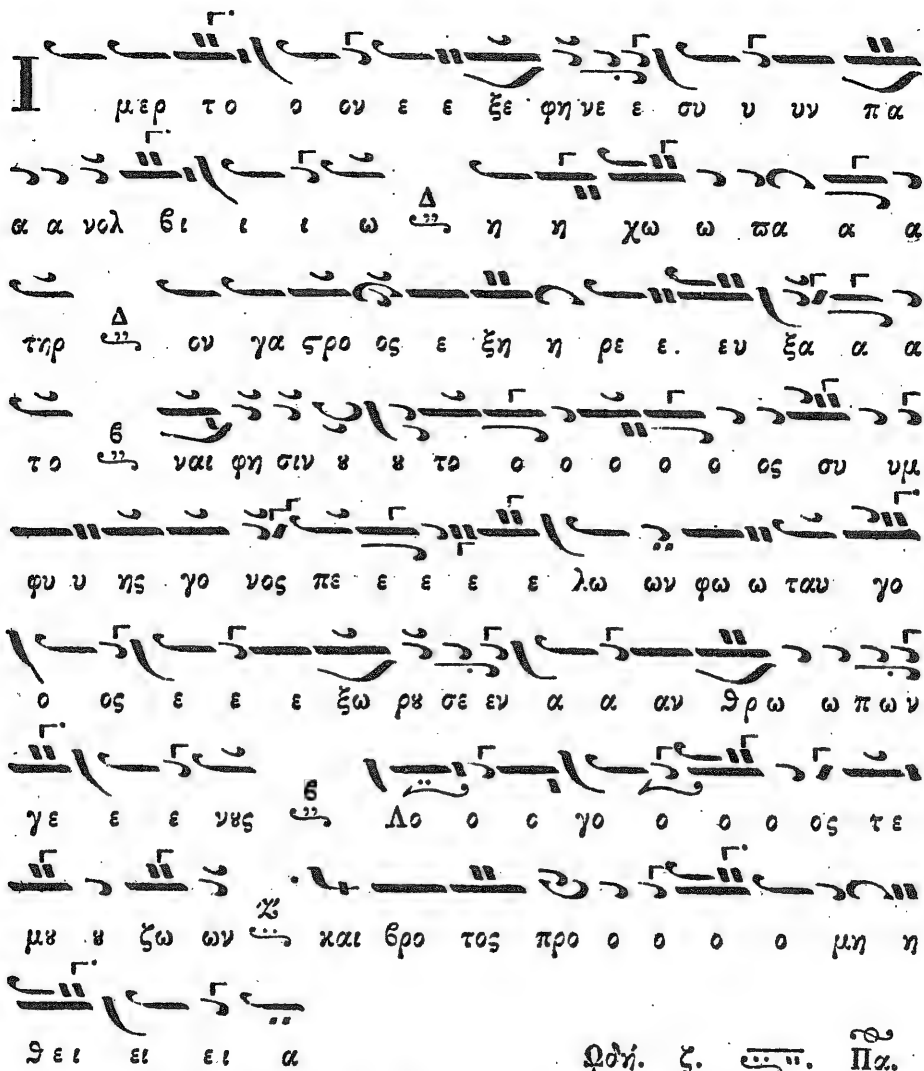 Ι μερ το ο ον ε ε ξε φη νε ε συ υ υν πα
α α νολ βι ι ι ω Δ η η χω ω πα α α
τηρ Δ ον γα ϛρο ος ε ξη η ρε ε. ευ ξα α α
το β ναι φη σιν ȣ ȣ το ο ο ο ο ος συ υμ
φυ υ ης γο νος πε ε ε ε ε λω ων φω ω ταυ γο
ο ος ε ε ε ξω ρȣ σε εν α α αν θρω ω πων
γε ε ε νȣς β Λο ο ο γο ο ο ο ος τε
μȣ ȣ ζω ων Ζ και βρο τος προ ο ο ο ο μη η
θει ει ει α
Ωδή. ζ. Πα.